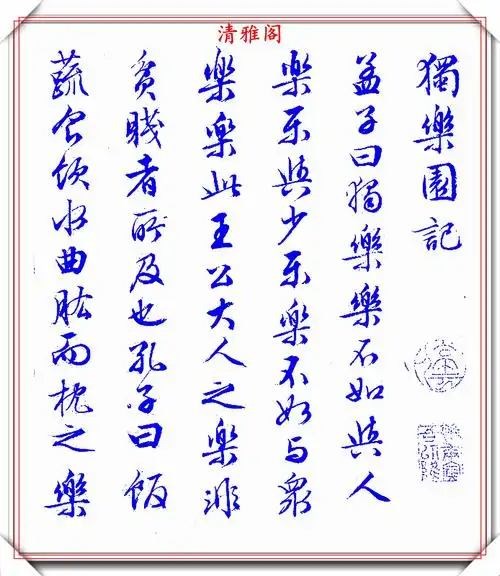 清雅阁
獨樂園記
孟子曰獨樂樂不如與人
樂乐與少乐樂不如与眾
樂樂此王公大人之樂非
貧賤者所及也孔子曰飯
蔬食饮水曲肱而枕之樂